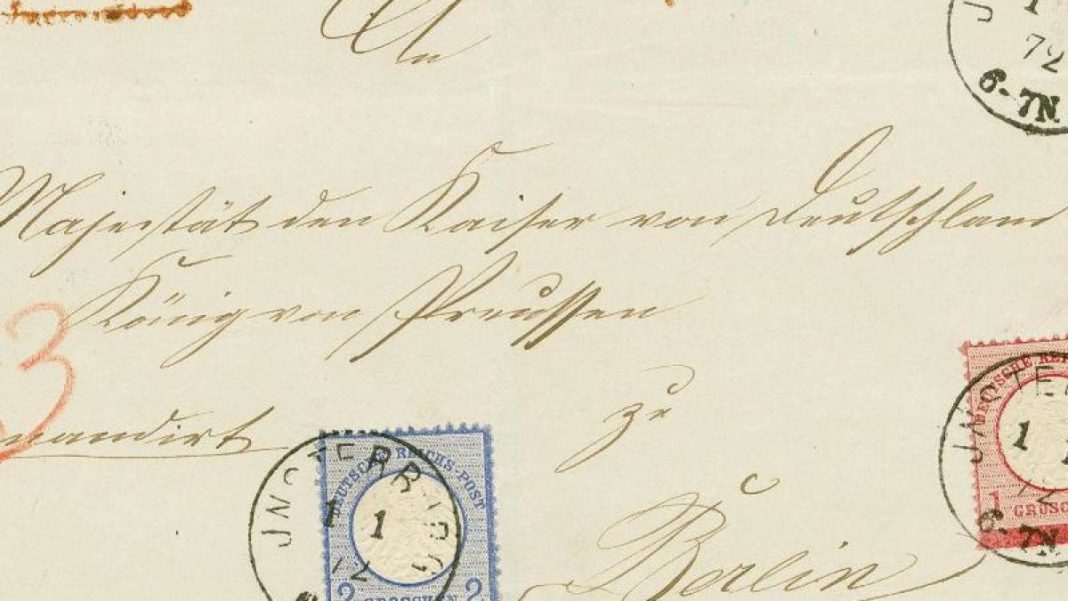 An
J 1
72
6-7N.
Majestät den Kaiser von Deutschland
König von Preussen
3
mandirt
zu
JNSTERBURG
1 1
72
DEUTSCHE REICHS-POST
2 GROSCHEN 2
DEUTSCHE REI
1 GROSCH
JNSTE
1 1
72
6-7N
Berlin